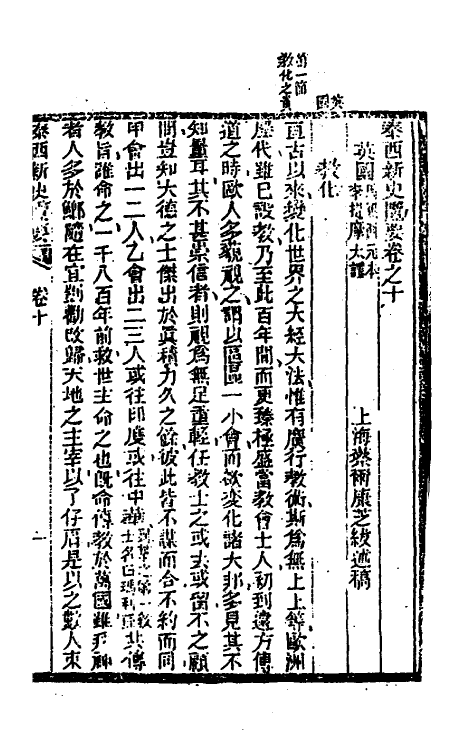 泰西新史攬要卷之十
英國馬懇西元本
李提摩太譯
上海蔡爾康芝紱述稿
英國
教化
第一節
教化之責
亘古以來變化世界之大經大法惟有廣行教術斯為無上上等歐洲
歷代雖已設教乃至此百年間而更臻極盛當教會士人初到遠方傳
道之時歐人多藐視之謂以區區一小會而欲變化諸大邦多見其不
知量耳其不甚崇信者則視為無足重輕任教士之或去或留不之顧
問豈知大德之士傑出於眞積力久之餘彼此皆不謀而合不約而同
甲會出一二人乙會出二三人或往印度或往中華到華之第一教士名曰瑪利遜其傳
教旨雖命之一千八百年前救世主命之也旣命傳教於萬國雖死神
者人多於鄉隨在宜勸勸改歸天地之主宰以了仔肩是以之數人束
泰西新史攬要
卷十
一